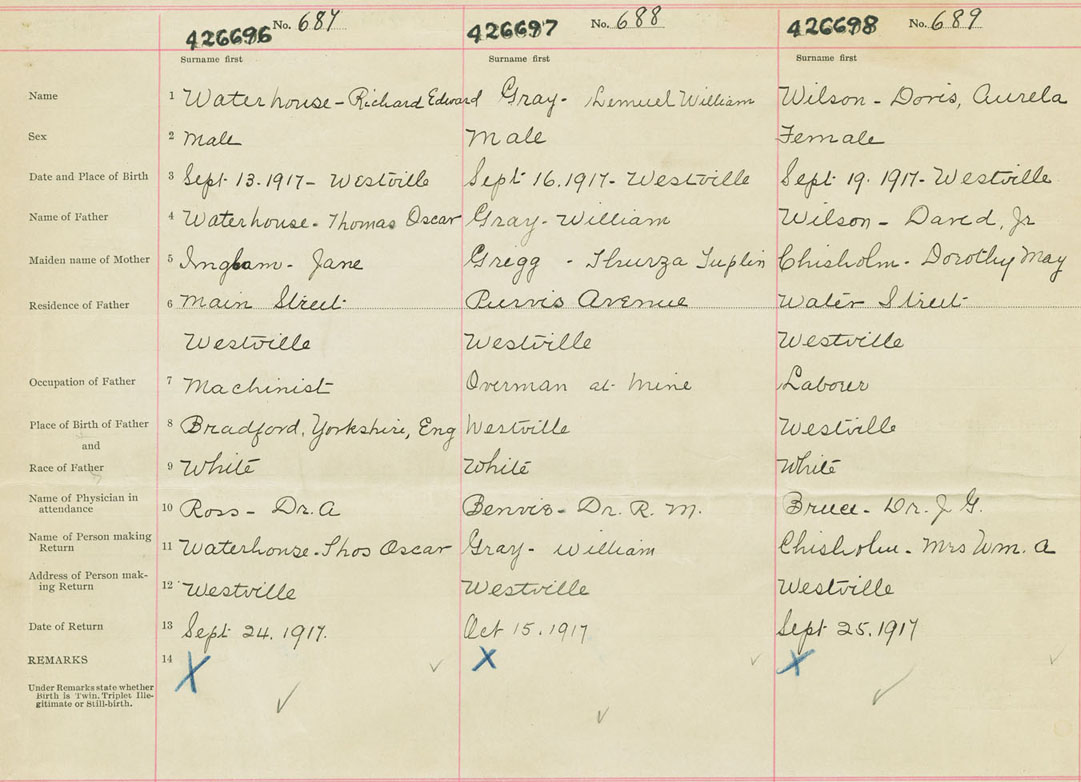 426696 No. 687 426697 No. 688 426698 No. 689
Surname first Surname first Surname first
Name 1 Waterhouse - Richard Edward Gray - Lemuel William Wilson - Doris, Aurela
Sex 2 Male Male Female
Date and Place of Birth 3 Sept 13. 1917 - Westville Sept 16. 1917 - Westville Sept 19. 1917 - Westville
Name of Father 4 Waterhouse - Thomas Oscar Gray - William Wilson - David, Jr
Maiden name of Mother 5 Ingham - Jane Gregg - Thurza Tuplin Chisholm - Dorothy May
Residence of Father 6 Main Street Purvis Avenue Water Street
Westville Westville Westville
Occupation of Father 7 Machinist Overman at Mine Laborer
Place of Birth of Father 8 Bradford, Yorkshire, Eng Westville Westville
and
Race of Father 9 White White White
Name of Physician in
attendance 10 Ross - Dr. A Benvie - Dr. R. M. Bruce - Dr. J G.
Name of Person making
Return 11 Waterhouse - Thos Oscar Gray - William Chisholm - Mrs Wm. A
Address of Person mak-
ing Return 12 Westville Westville Westville
Date of Return 13 Sept 24. 1917. Oct 15. 1917 Sept 25. 1917
REMARKS 14 X X X
Under Remarks state whether
Birth is Twin, Triplet Ille-
gitimate or Still-birth.